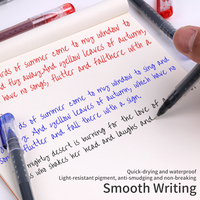 ards of summer come to my window to
d fly away. And yellow leaves of autumn,
have no songs, flutter and fall there with a
ds of summer come to my window to sing and
y. And yellow leaves of autumn, which have no
s, flutter and fall there with a sign.
mightly desert is burning for the love of a
who shakes her head and laughs and
Quick-drying and waterproof
Light-resistant pigment, anti-smudging and non-breaking
Smooth Writing